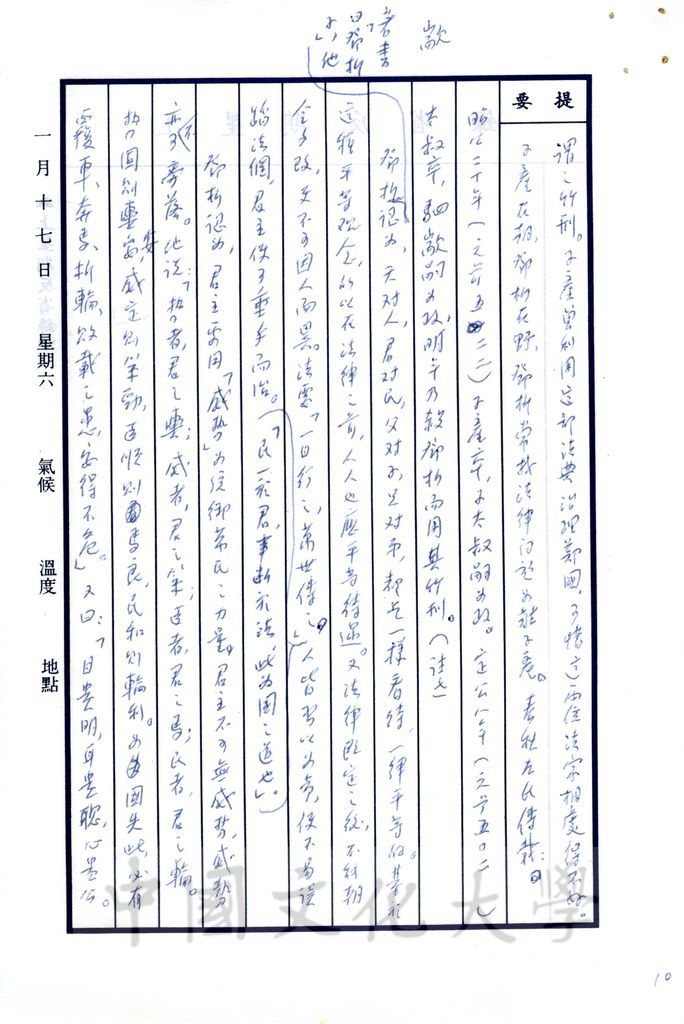 歂
著書
曰鄧析
子，他
提要
謂之竹刑。子產曾利用這部法典治理鄭國，可惜這兩位法家相處得不好。
子產在朝，鄧析在野，鄧析常找法律問題為難子產。春秋左氏傳載：
昭公二十年（公元前五二二）子產卒，子大叔嗣為政。定公八年（公元前五〇二）
大叔卒，駟歂嗣為政，明年乃殺鄧析而用其竹刑。（註七）
鄧析認為，天對人，君對民，父對子，兄對弟，都是一樣看待，一律平等的。基於
這種平等觀念，所以在法律之前，人人也應平等待遇。又法律既定之後，不能朝
令夕改，更不可因人而異。法要「一日行之，萬世傳之」，人皆習以為常，便不易誤
蹈法網，君主便可垂手而治。（「民一於君，事斷於法，此為國之道也」。）
鄧析認為，君主要用「威勢」為統御萬民之力量，君主不可無威勢，威勢
亦不可旁落。他說：「勢者，君之輿；威者，君之策；臣者，君之馬；民者，君之輪。
勢固則輿安，威定則策勁，臣順則馬良，民和則輪利。為國失此，必有
覆車、奔馬、折輪、敗載之患，安得不危。」又曰：「目貴明，耳貴聰，心貴公。
一月十七日 星期六 氣候 溫度 地點
中國文化大學
10